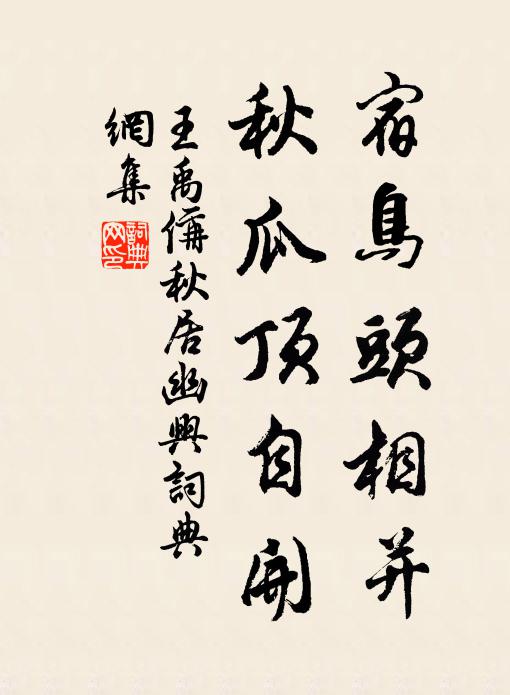 宿鳥頭相并
秋瓜頂自開
王禹偁秋居幽興詞典
網集
詞典
网印